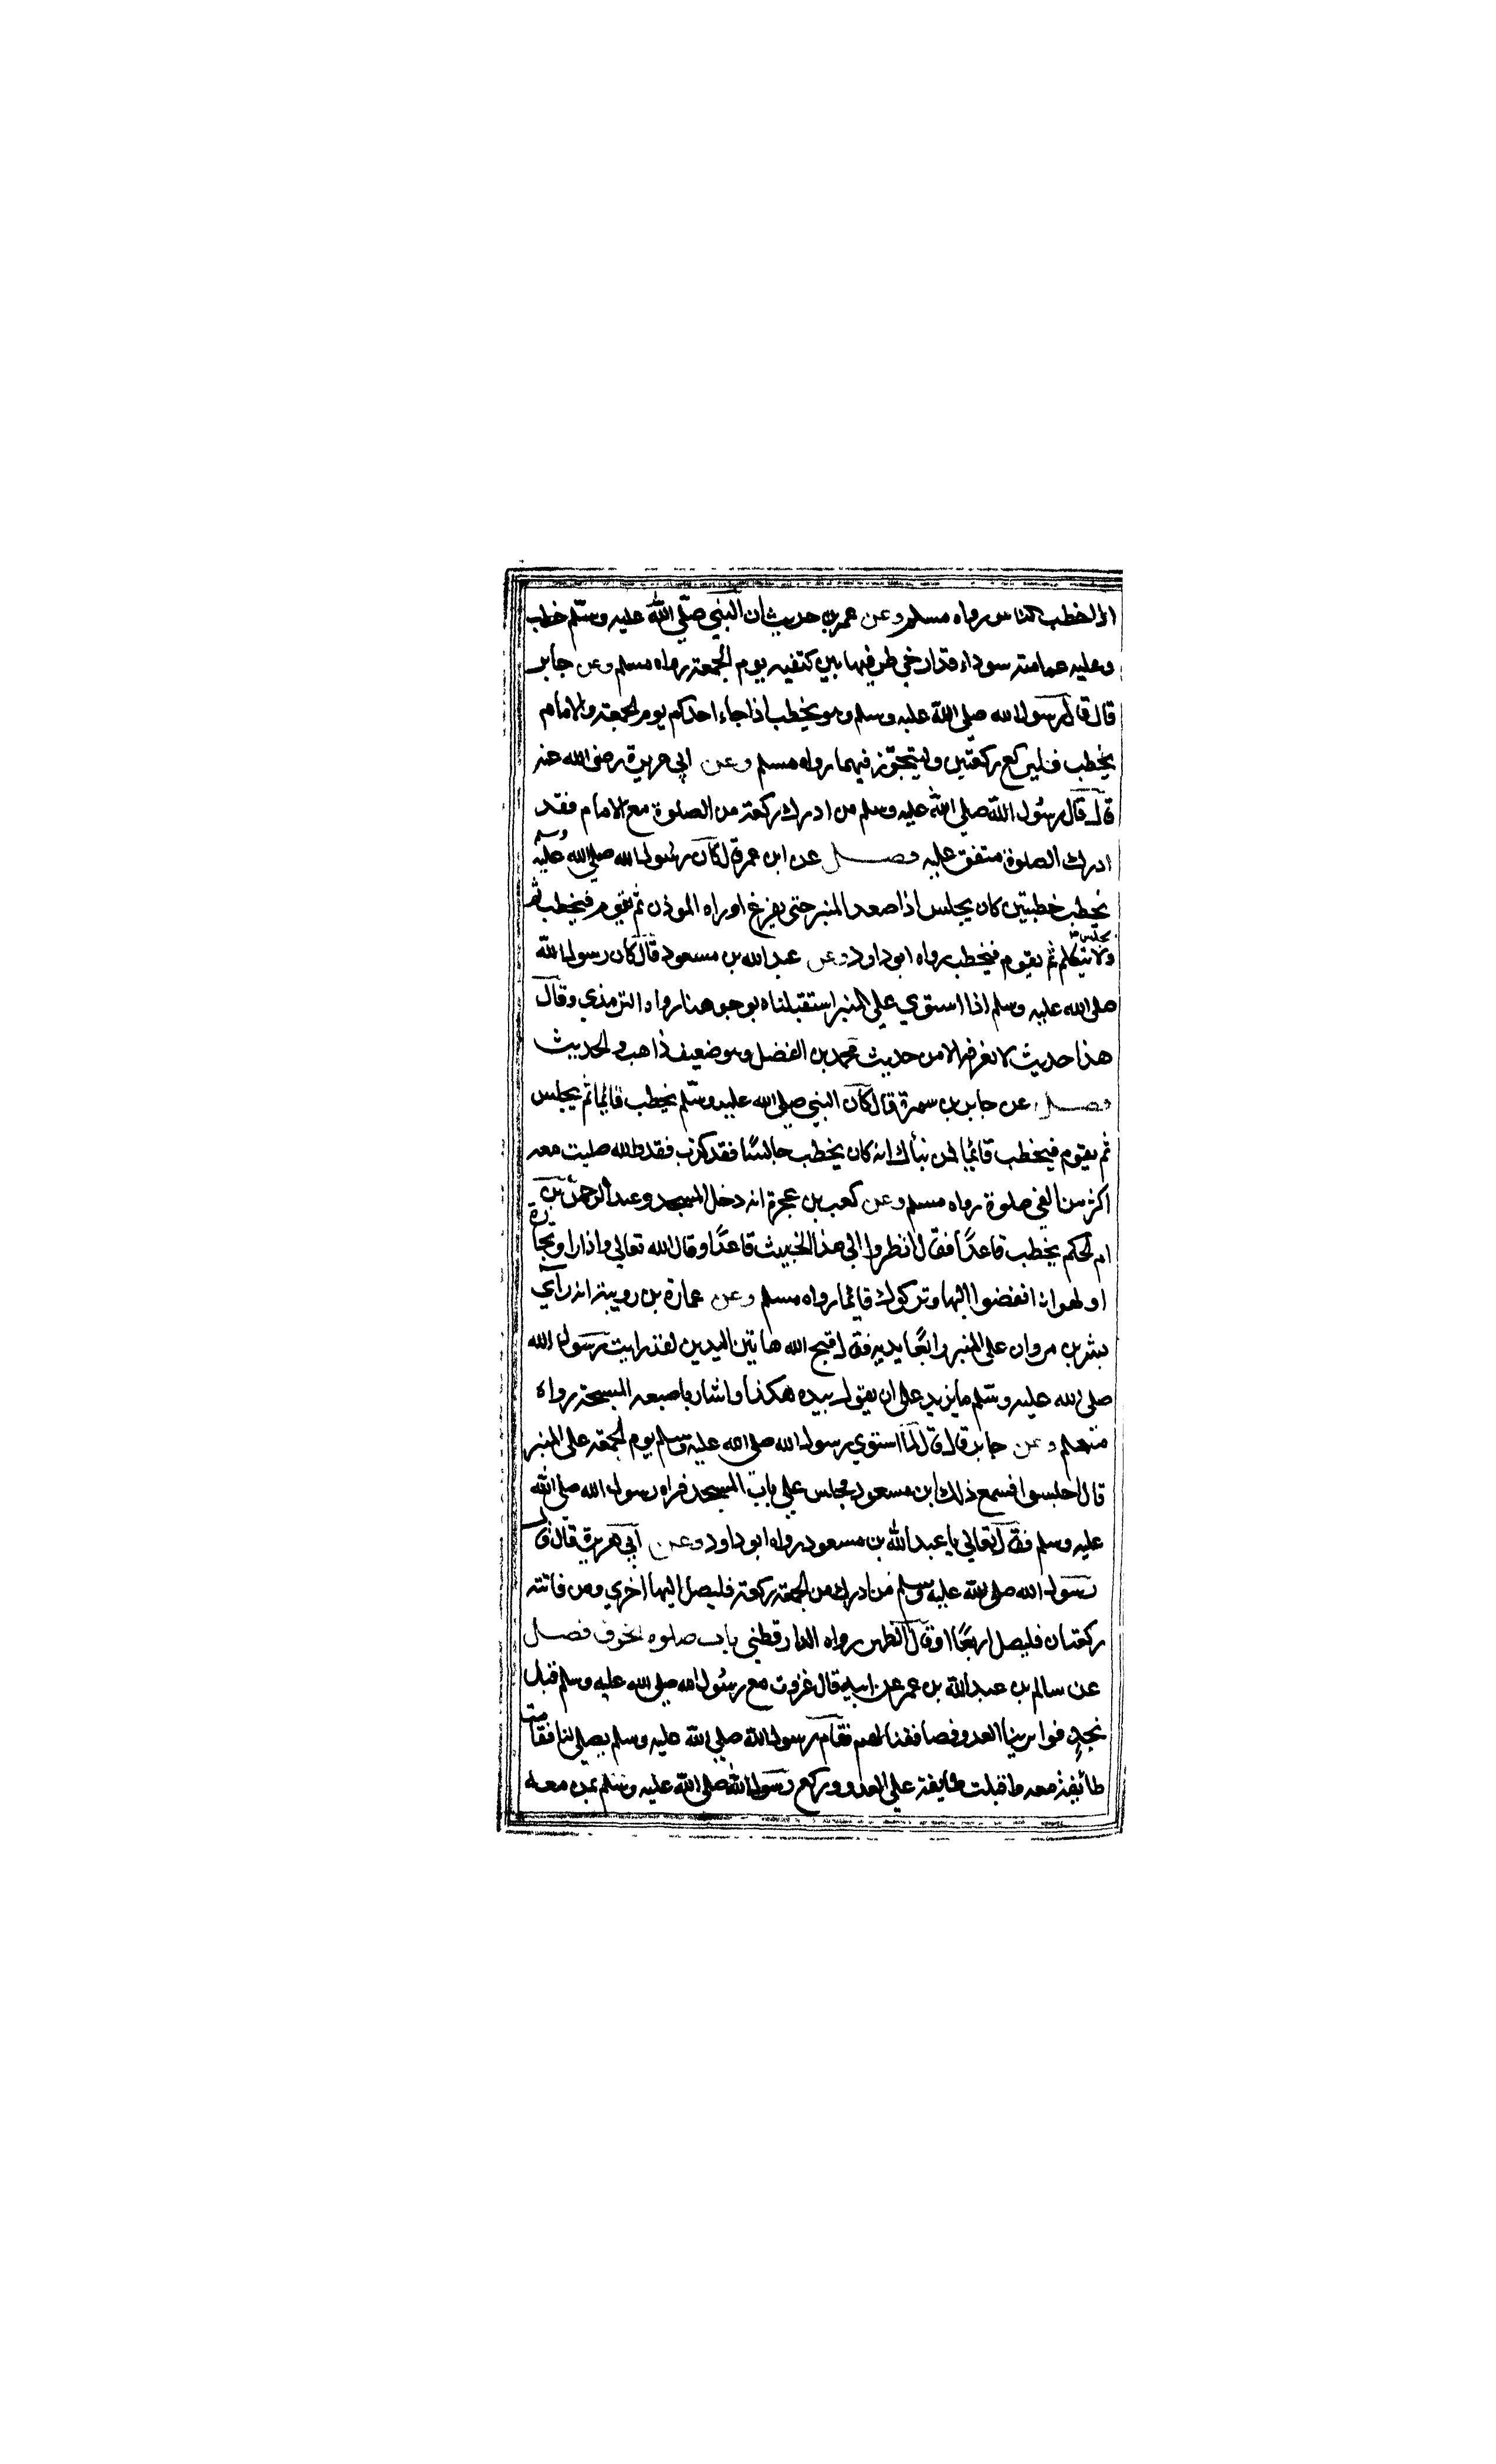 اذا خطب الناس رواه مسلم وعن عمرو بن حريث ان النبي صلى الله عليه وسلم خطب
وعليه عمامة سوداء قد ارخى طرفيها بين كتفيه يوم الجمعة رواه مسلم وعن جابر
قال قال رسول الله صلى الله عليه وسلم وهو يخطب اذا جاء احدكم يوم الجمعة والامام
يخطب فليركع ركعتين وليتجوز فيهما رواه مسلم وعن ابي هريرة رضى الله عنه
قال قال رسول الله صلى الله عليه وسلم من ادرك ركعة من الصلوة مع الامام فقد
ادرك الصلوة متفق عليه فصل عن ابن عمر قال كان رسول الله صلى الله عليه وسلم
يخطب خطبتين كان يجلس اذا صعد المنبر حتى يفرغ اوراه الموذن ثم يقوم فيخطب ثم
يجلس ولا يتكلم ثم يقوم فيخطب رواه ابو داود وعن عبد الله بن مسعود قال كان رسول الله
صلى الله عليه وسلم اذا استوي علي المنبر استقبلناه بوجوهنا رواه الترمذي وقال
هذا حديث لا نعرفه الا من حديث محمد بن الفضل وهو ضعيف ذاهب الحديث
فصل عن جابر بن سمرة قال كان النبي صلي الله عليه وسلم يخطب قائما ثم يجلس
ثم يقوم فيخطب قائما فمن نبأك انه كان يخطب جالسًا فقد كذب فقد والله صليت معه
اكثر من الفي صلوة رواه مسلم وعن كعب بن عجرة انه دخل المسجد وعبد الرحمن بن
ام الحكم يخطب قاعدًا فقال انظروا الي هذا الخبيث قاعدًا وقال الله تعالي واذا راوا تجارة
او لهوا ن انفضوا اليها وتركوك قائما رواه مسلم وعن عمارة بن رويبة انه راي
بشر بن مروان على المنبر رافعًا يديه فقال قبح الله هاتين اليدين لقد رايت رسول الله
صلى الله عليه وسلم ما يزيد على ان يقول بيده هكذا واشار باصبعه المسبحة رواه
مسلم وعن جابر قال قال لما استوي رسول الله صلى الله عليه وسلم يوم الجمعة على المنبر
قال اجلسوا فسمع ذلك ابن مسعود فجلس علي باب المسجد فراه رسول الله صلى الله
عليه وسلم فقال تعالي يا عبد الله بن مسعود رواه ابو داود وعن ابي هريرة قال قال
رسول الله صلى الله عليه وسلم من ادرك من الجمعة ركعة فليصل اليها اخري ومن فاتته
ركعتان فليصل اربعًا او قال الظهر رواه الدارقطني باب صلوة الخوف فصل
عن سالم بن عبد الله بن عمر عن ابيه قال غزوت مع رسول الله صلى الله عليه وسلم قبل
نجدٍ فوازينا العدو فصاففنا لهم فقام رسول الله صلى الله عليه وسلم يصلي لنا فقامت
طائفة معه واقبلت طايفة علي العدو وركع رسول الله صلى الله عليه وسلم بمن معه